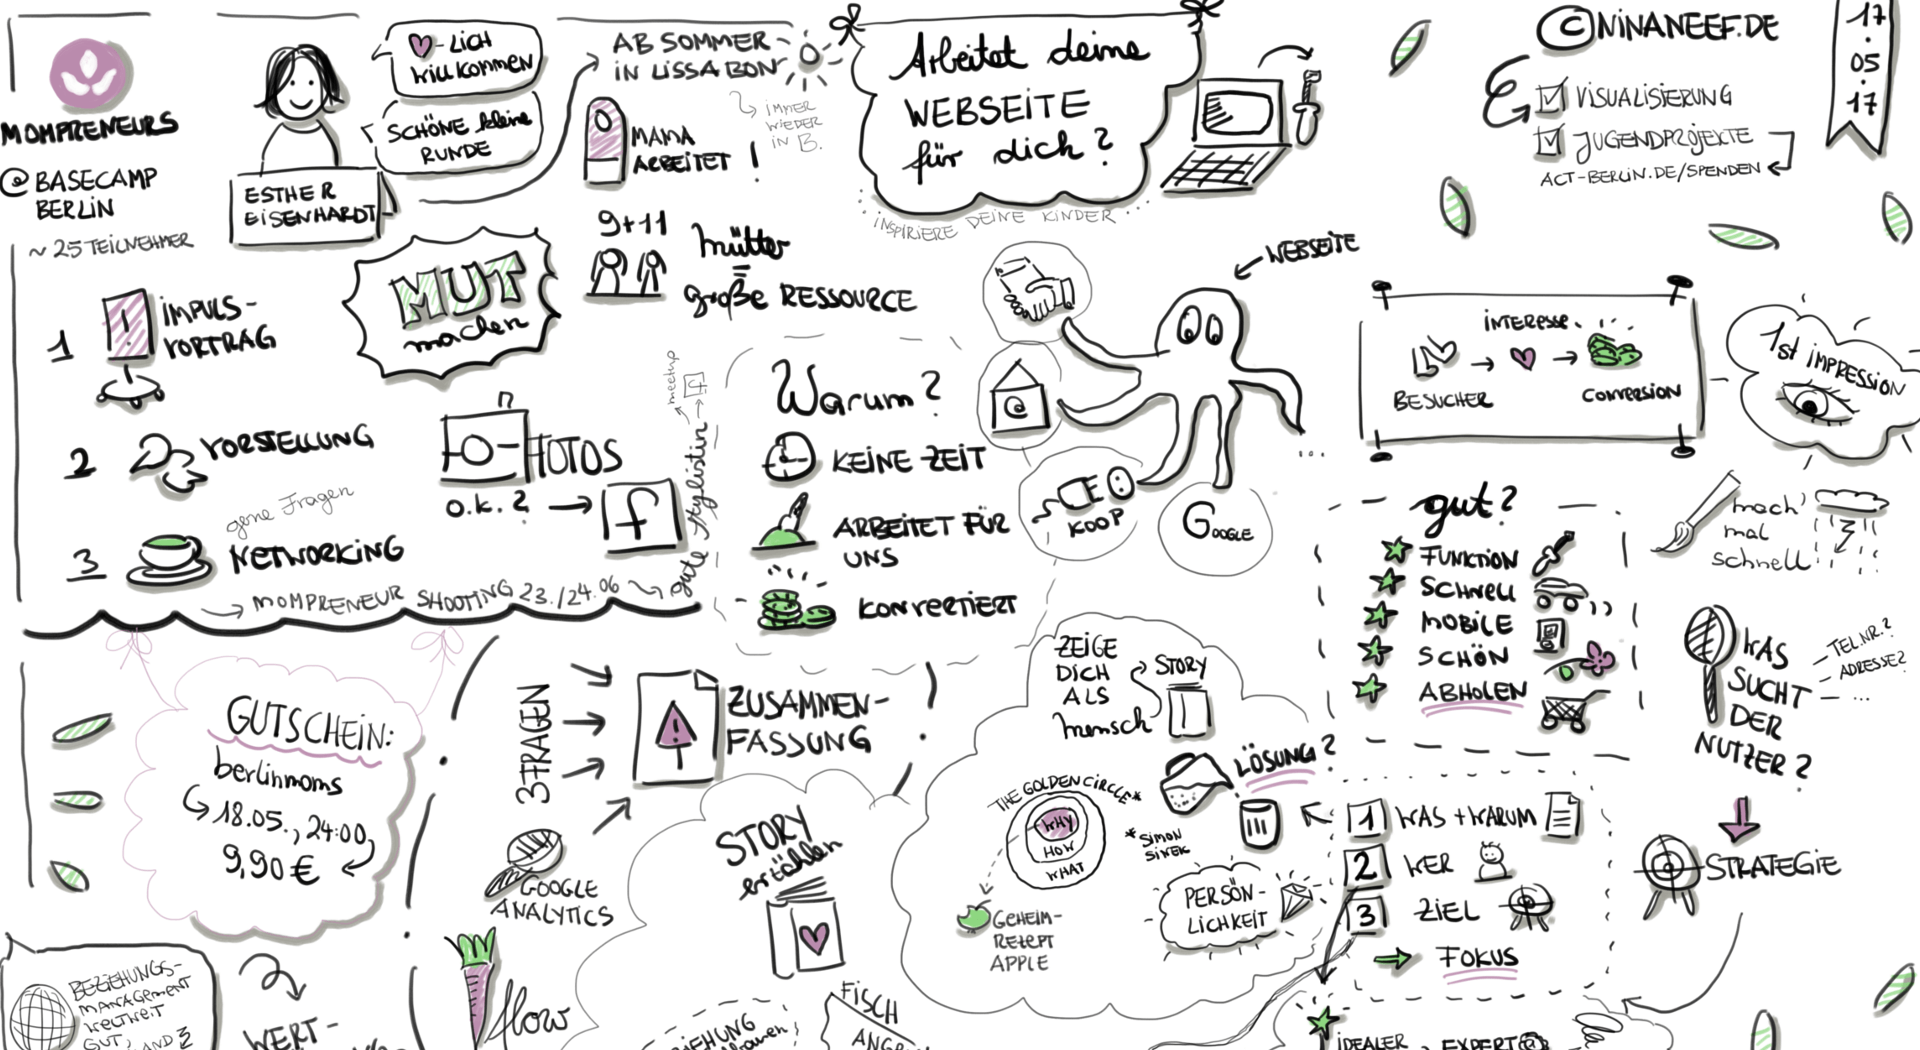 MOMPRENEURS
@ BASECAMP
BERLIN
~ 25 TEILNEHMER
ESTHER
EISENHARDT
-LICH
WILLKOMMEN
SCHÖNE kleine
RUNDE
AB SOMMER
IN LISSABON
IMMER
WIEDER
IN B.
MAMA
ARBEITET !
9+11
Mütter
=
große RESSOURCE
MUT
machen
1 IMPULS-
VORTRAG
2 VORSTELLUNG
gerne Fragen
3 NETWORKING
FOTOS
o.k.? → f
→ MOMPRENEUR SHOOTING 23./24.06
gute Stylistin → f
meetup
Arbeitet deine
WEBSEITE
für dich?
... INSPIRIERE DEINE KINDER ...
© NINANEEF.DE
VISUALISIERUNG
JUGENDPROJEKTE
ACT-BERLIN.DE/SPENDEN
17
.
05
.
17
WEBSEITE
@
KOOP
GOOGLE
...
Warum?
KEINE ZEIT
ARBEITET FÜR
UNS
KONVERTIERT
INTERESSE
BESUCHER
CONVERSION
1st IMPRESSION
gut?
FUNKTION
SCHNELL
MOBILE
SCHÖN
ABHOLEN
mach'
mal
schnell!
WAS
SUCHT
DER
NUTZER?
- TEL.NR.?
- ADRESSE?
- ...
STRATEGIE
GUTSCHEIN:
berlinmoms
18.05., 24:00
9,90 €
3 FRAGEN
ZUSAMMEN-
FASSUNG
GOOGLE
ANALYTICS
STORY
erzählen
ZEIGE
DICH
ALS
Mensch
STORY
LÖSUNG?
THE GOLDEN CIRCLE*
WHY
HOW
WHAT
* SIMON
SINEK
GEHEIM-
REZEPT
APPLE
PERSÖN-
LICHKEIT
1 WAS + WARUM
2 WER
3 ZIEL
→ FOKUS
BEZIEHUNGS-
MANAGEMENT
WELTWEIT
GUT,
WERT-
flow
FISCH
IDEALER
EXPERT